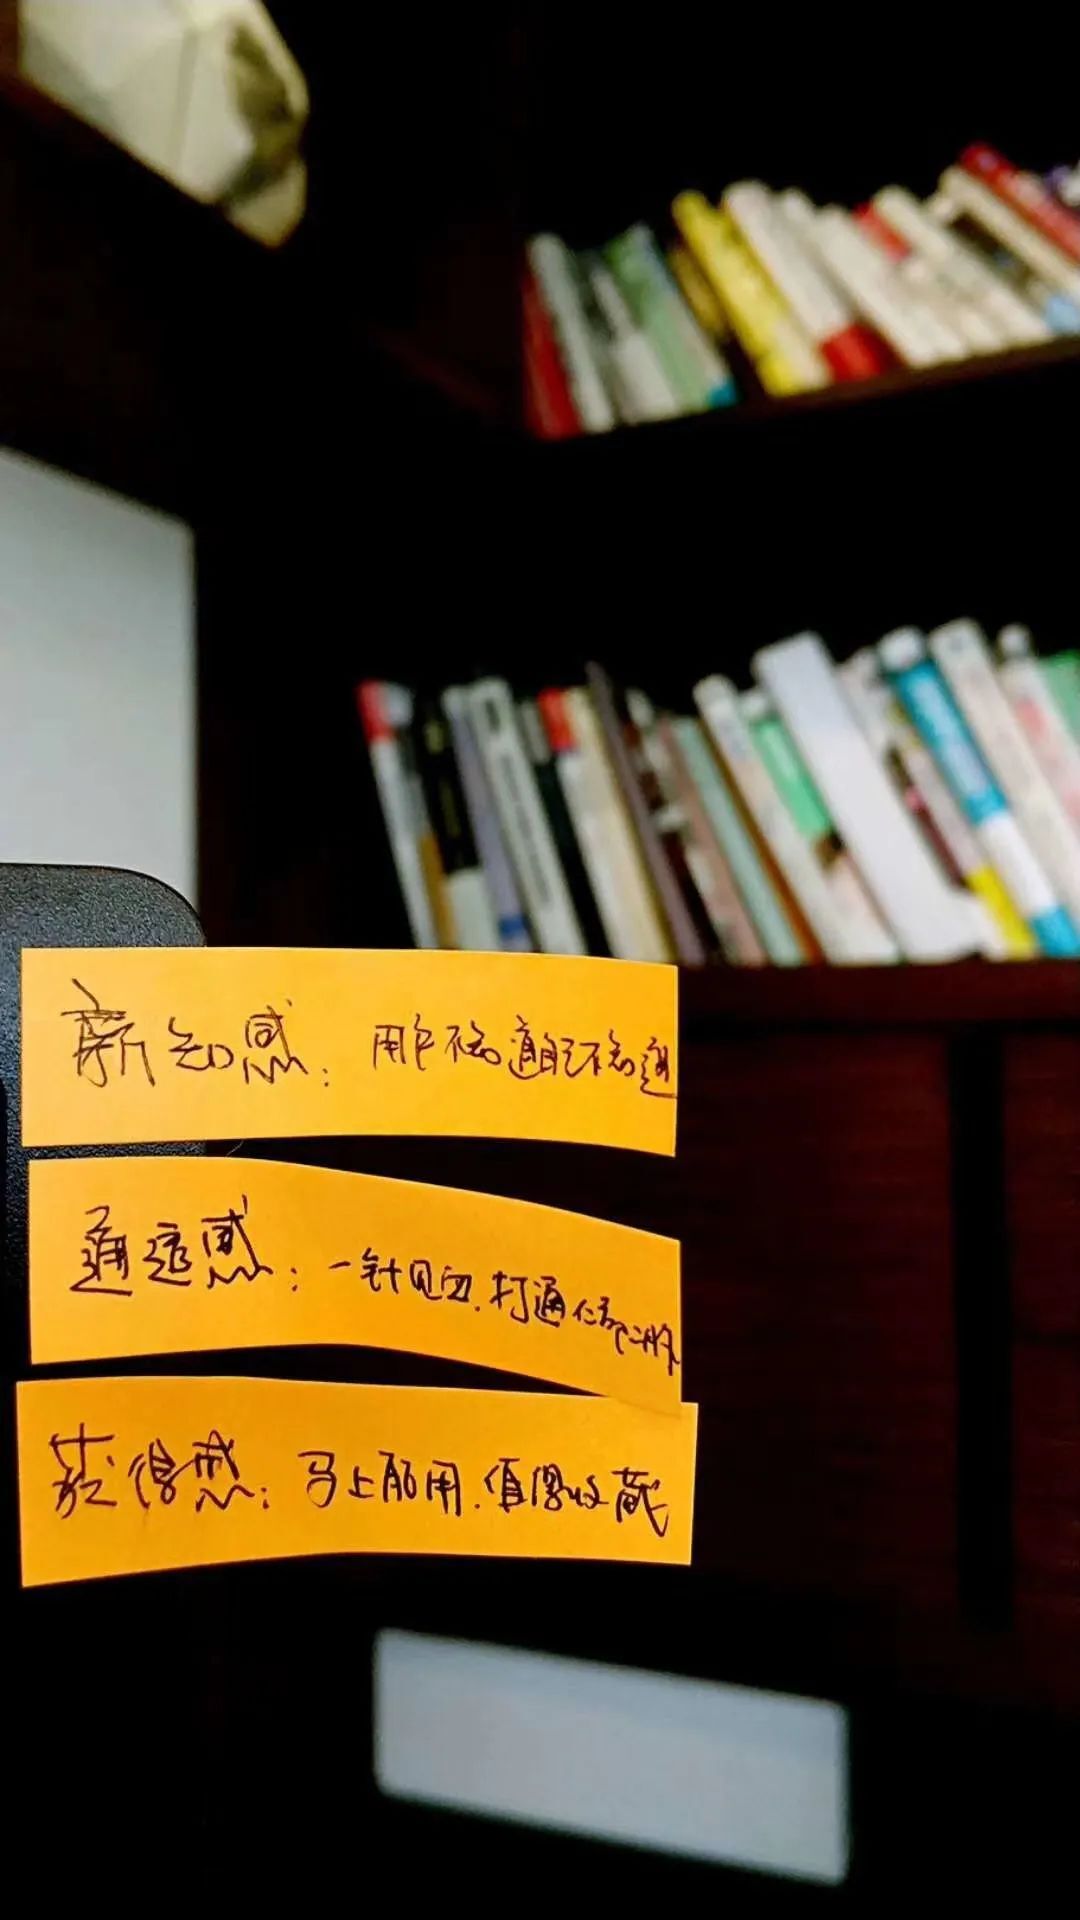 新知感：用户不知道自己不知道
通透感：一针见血.打通任督二脉
获得感：马上能用.值得收藏